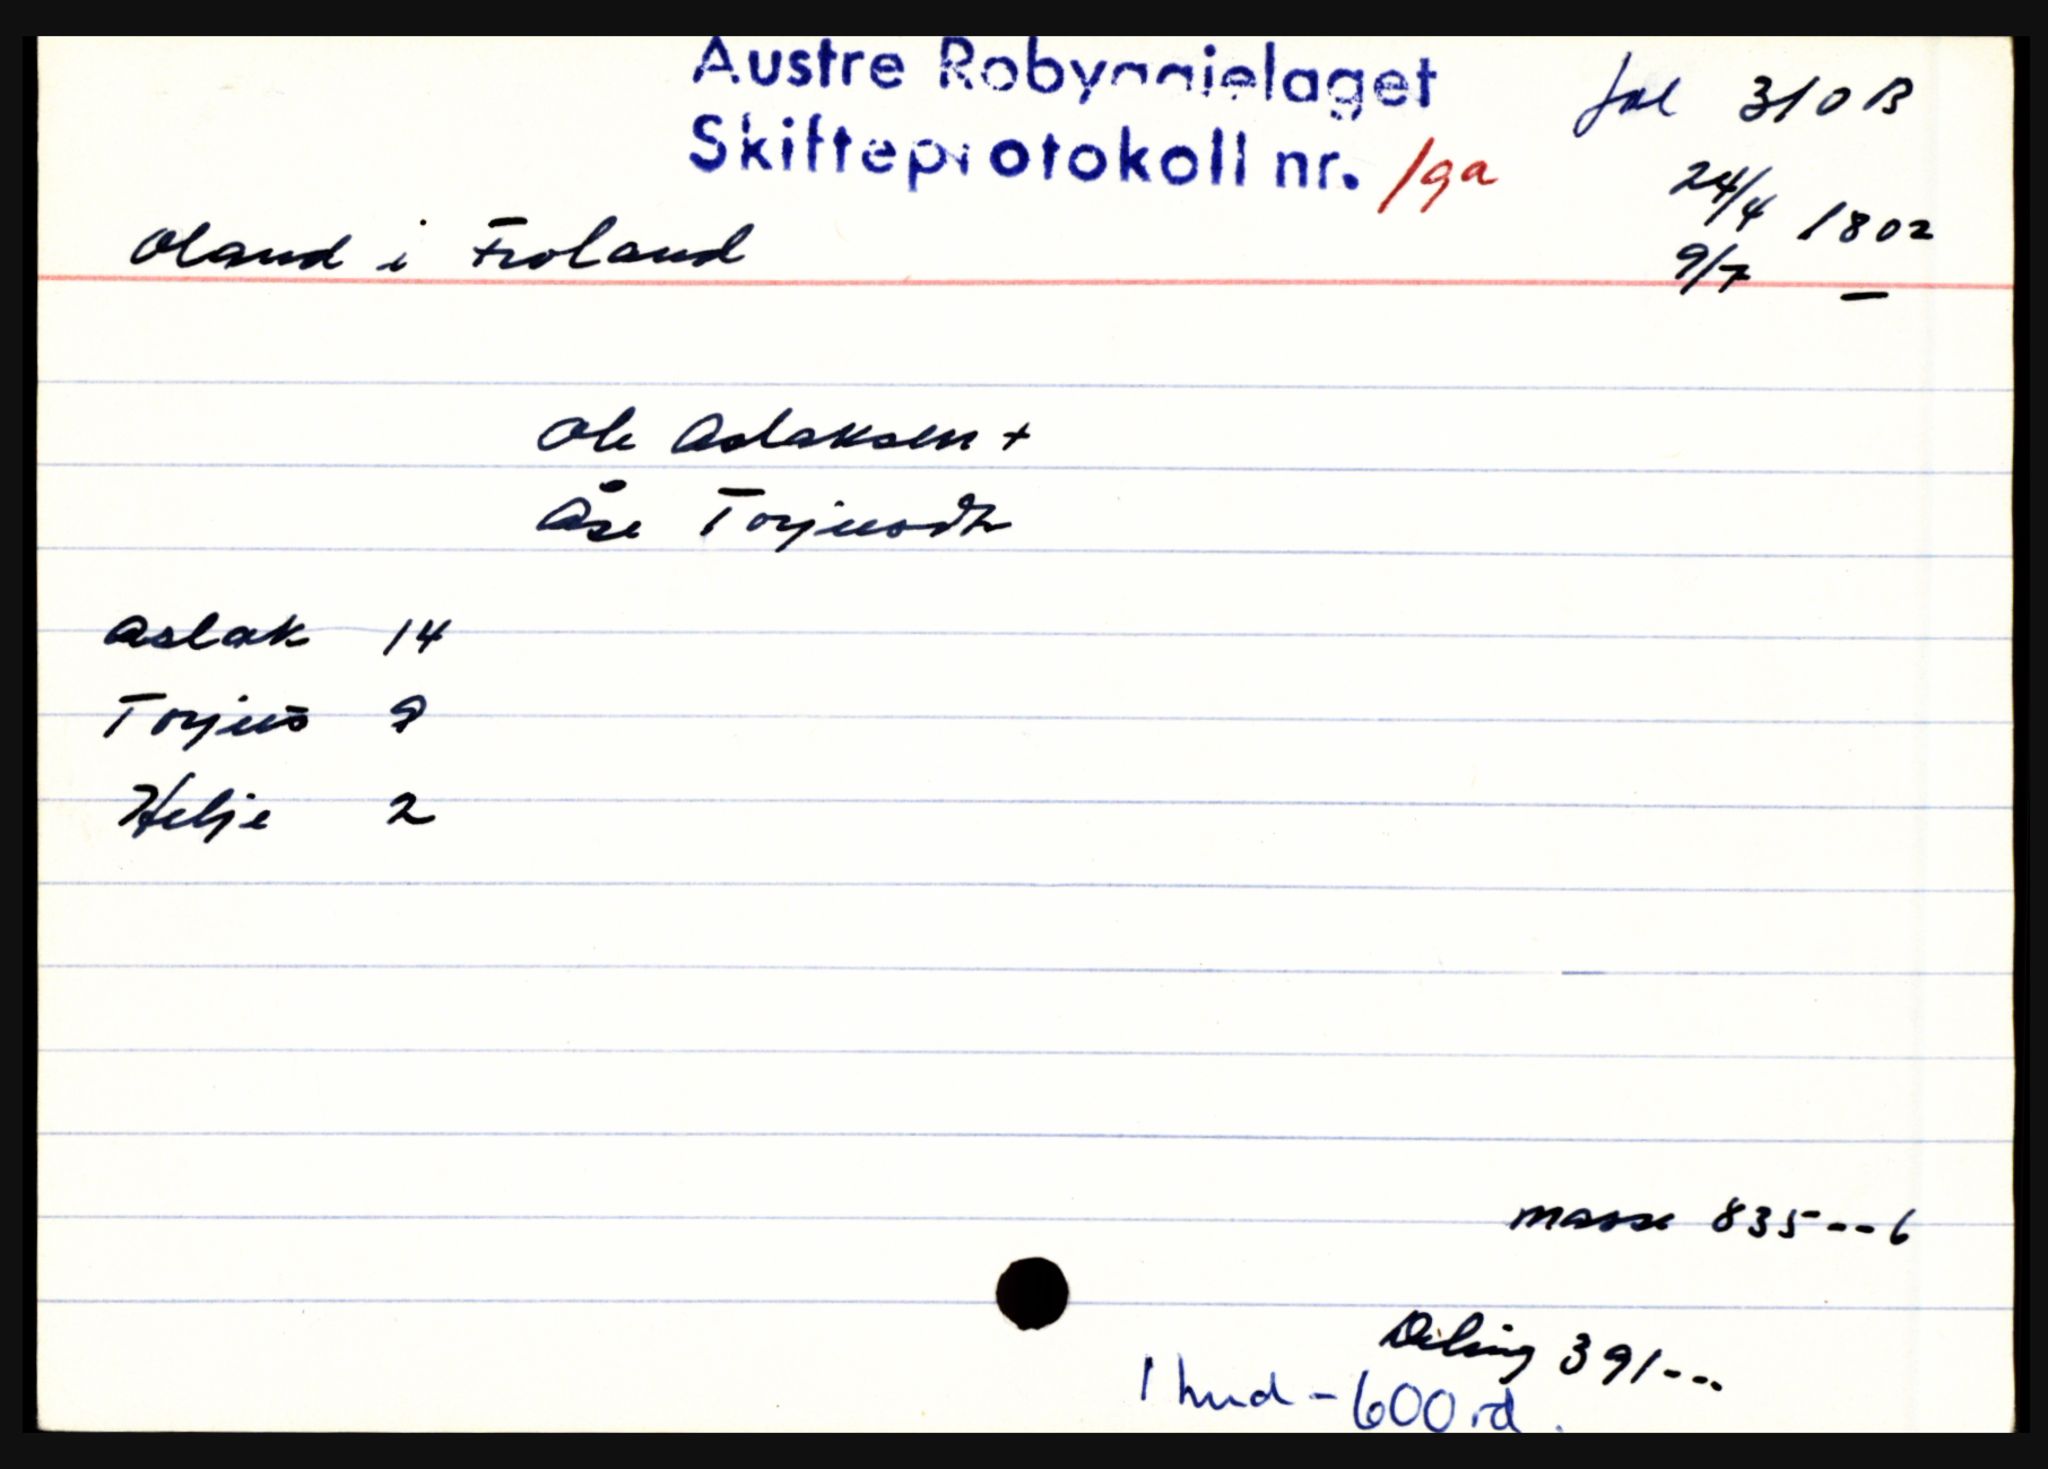 Austre Robyggjelaget
Skifteprotokoll nr. 19a
fol 310 B
24/4 1802
9/7 —
Oland i Froland
Ole Aslaksen +
Åse Torjusdtr
Aslak 14
Torjus 9
Helje 2
masse 835---6
Deling 391---
1 hud - 600 rd.